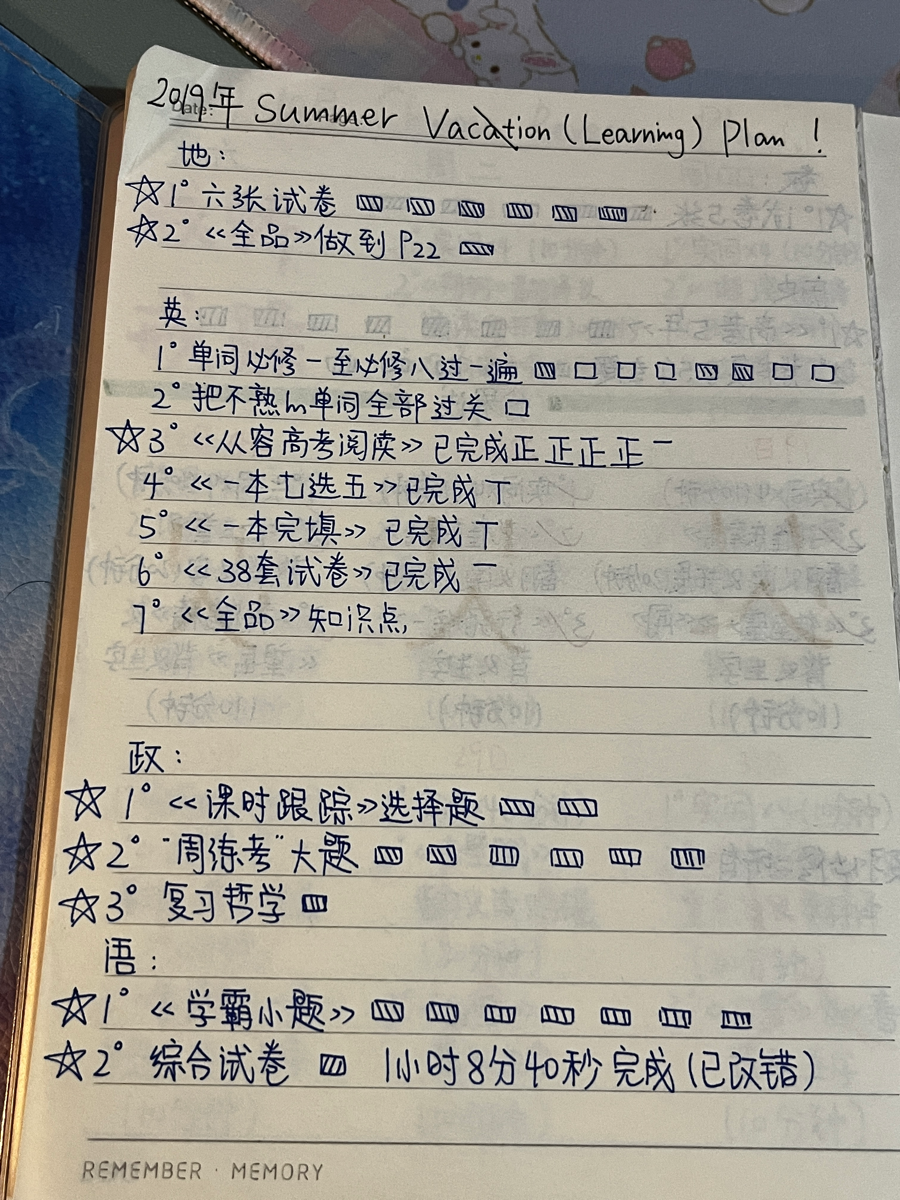 2019年 Summer Vacation (Learning) Plan !
Date:
地:
☆1° 六张试卷 ▨ ▨ ▨ ▨ ▨ ▨
☆2° 《全品》做到 P22 ▨
英:
1° 单词必修一至必修八过一遍 ▨ □ □ □ ▨ ▨ □ □
2° 把不熟的单词全部过关 □
☆3° 《从容高考阅读》已完成正正正正一
4° 《一本七选五》已完成丅
5° 《一本完填》已完成丅
6° 《38套试卷》已完成一
7° 《全品》知识点,
政:
☆1° 《课时跟踪》选择题 ▨ ▨
☆2° "周练考"大题 ▨ ▨ ▨ ▨ ▨ ▨
☆3° 复习哲学 ▨
语:
☆1° 《学霸小题》 ▨ ▨ ▨ ▨ ▨ ▨ ▨
☆2° 综合试卷 ▨ 1小时8分40秒完成(已改错)
REMEMBER · MEMORY